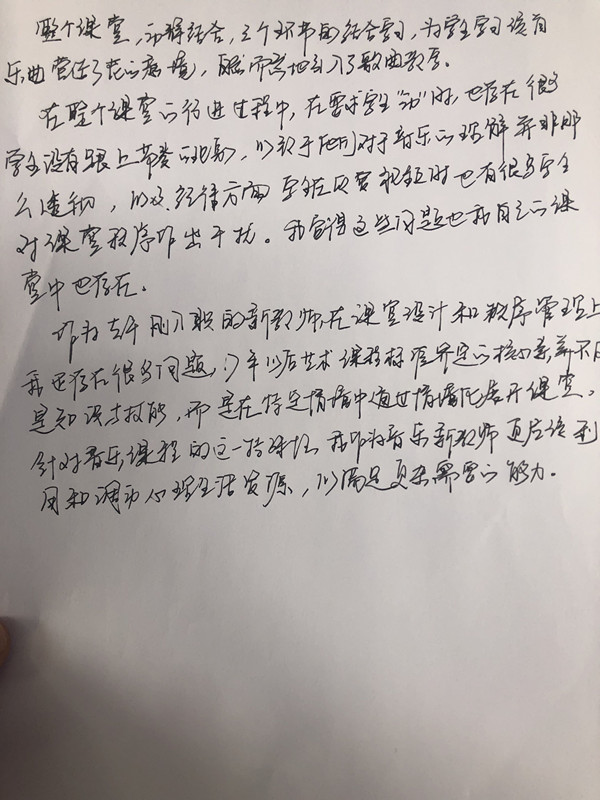 整个课堂，动静结合，三个环节的结合学习，为学生学习该首
乐曲营造了老的意境，顺而然地引入了歌曲教学。
在整个课堂的行进过程中，在要求学生“动”时，也存在很多
学生没有跟上节奏的现象，以致于他们对于音乐的理解并非那
么透彻，以及纪律方面 学生在欣赏视频时也有很多学生
对课堂秩序作出干扰。我觉得这些问题也我自己的课
堂中也存在。
作为去年刚入职的新教师，在课堂设计和秩序管理上
我还存在很多问题，今年以后艺术课程标准界定的核心素养不
是知识与技能，而是在特定情境中通过情境化展开课堂。
针对音乐课程的这一特殊性，我作为音乐新教师更应该利
用和调动心理生活资源，以满足复杂需要的能力。